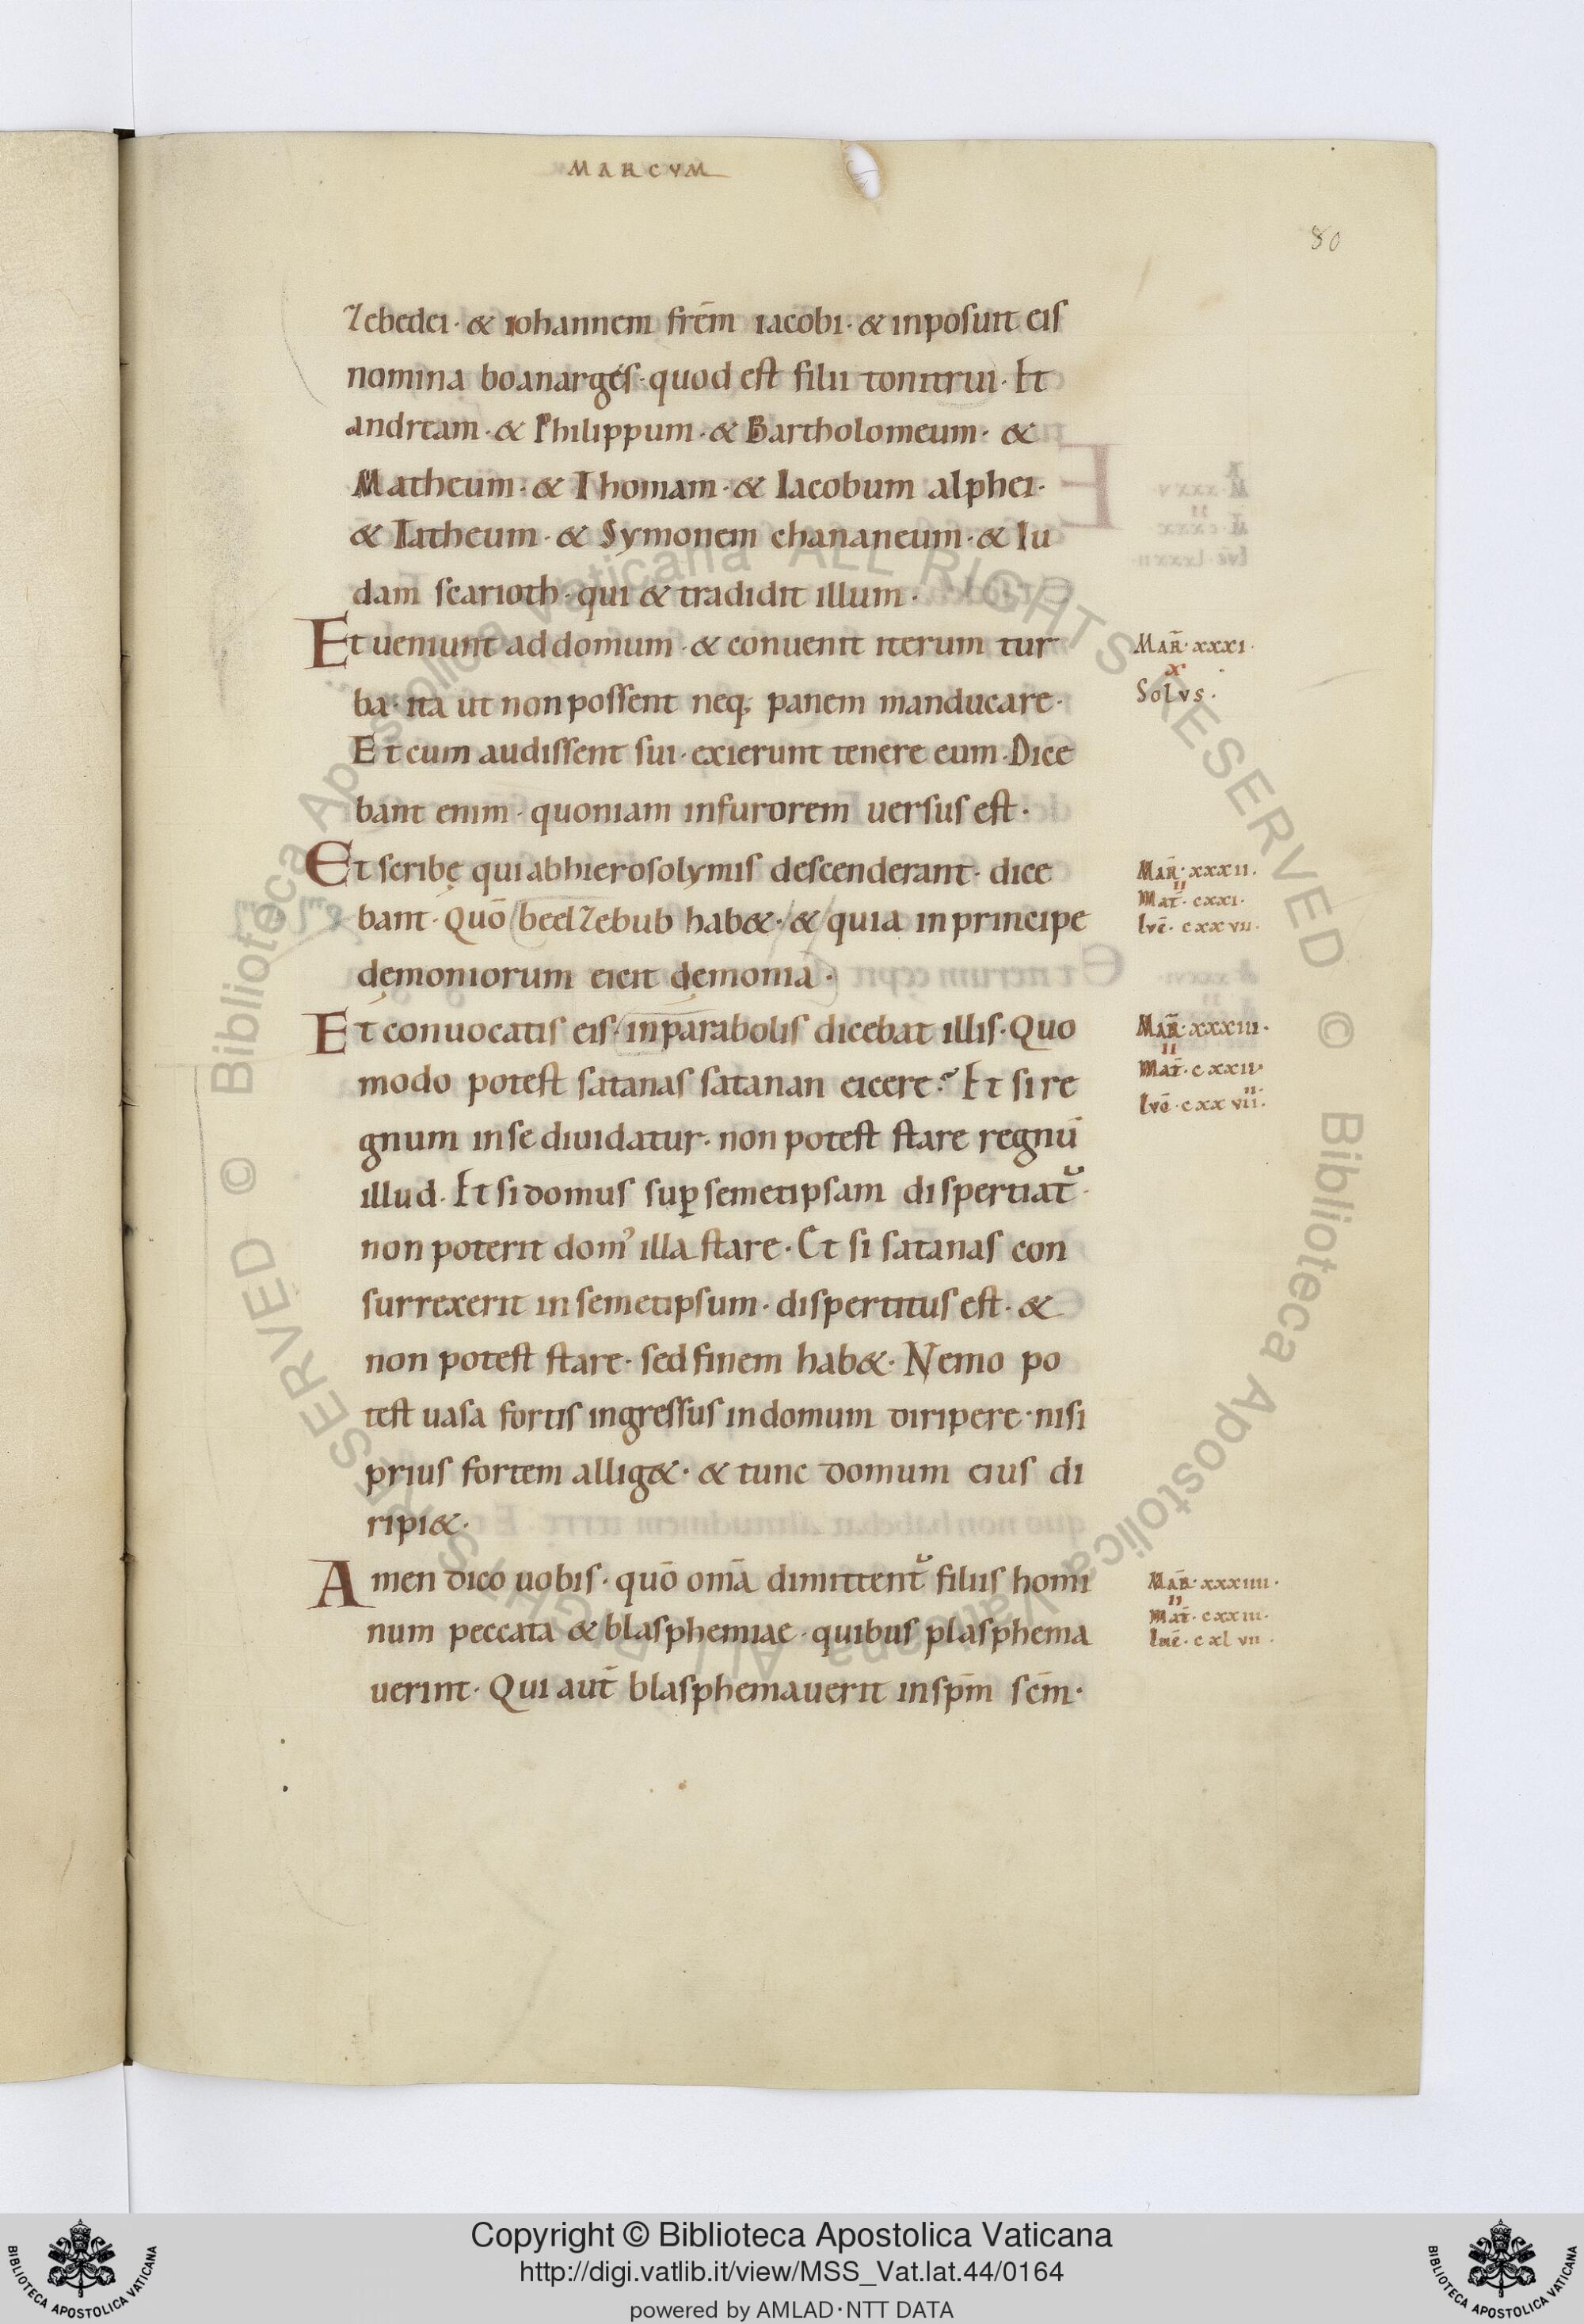 MARCVM
80
Zebedei· & iohannem frēm iacobi· & inposuit eis
nomina boanargés· quod est filii tonitrui· Et
andream· & Philippum· & Bartholomeum· &
Matheum· & Thomam· & Iacobum alphei·
& Tatheum· & Symonem chananeum· & Iu
dam scarioth· qui & tradidit illum·
Et ueniunt ad domum· & conuenit iterum tur
ba· ita ut non possent neq; panem manducare·
Et cum audissent sui· exierunt tenere eum· Dice
bant enim· quoniam in furorem uersus est·
Et scribę qui ab hierosolymis descenderant· dice
bant· Quō beelzebub hab&· & quia in principe
dęmoniorum eicit dęmonia·
Et conuocatis eis· in parabolis dicebat illis· Quo
modo potest satanas satanan eicere? Et si re
gnum in se diuidatur· non potest stare regnū
illud· Et si domus sup̱ semetipsam dispertiat᷑·
non poterit domꝰ illa stare· Et si satanas con
surrexerit in semetipsum· dispertitus est· &
non potest stare· sed finem hab&· Nemo po
test uasa fortis ingressus in domum diripere· nisi
prius fortem allig&· & tunc domum eius di
ripi&·
Amen dico uobis· quō om̄a dimittent᷑ filiis homi
num peccata & blasphemiae· quibus plasphema
uerint· Qui aut̄ blasphemauerit in spm̄ scm̄·
MAR̄· xxxi·
x
Solvs·
MAR̄· xxxii·
ii
Mat̄· cxxi·
lvc̄· cxxvii·
MAR̄· xxxiii·
ii
Mat̄· cxxii·
lvc̄· cxxvii·
MAR̄· xxxiiii·
ii
Mat̄· cxxiii·
luc̄· cxlvii·
© Biblioteca Apostolica Vaticana ALL RIGHTS RESERVED
© Biblioteca Apostolica Vaticana ALL RIGHTS RESERVED
Copyright © Biblioteca Apostolica Vaticana
http://digi.vatlib.it/view/MSS_Vat.lat.44/0164
powered by AMLAD·NTT DATA
BIBLIOTECA APOSTOLICA VATICANA
BIBLIOTECA APOSTOLICA VATICANA